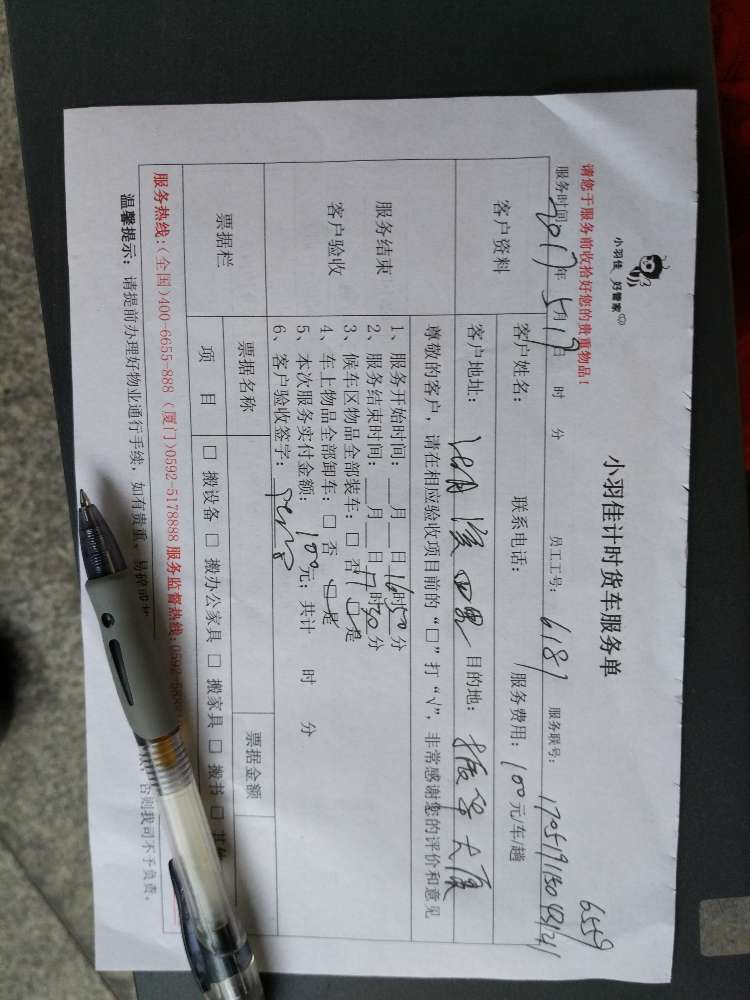 小羽佳 好管家
小羽佳计时货车服务单
6559
请您于服务前收拾好您的贵重物品！
服务时间: 2017年 5月19日 时 分 员工工号: 6181 服务联号:
客户资料
客户姓名: 联系电话: 服务费用: 100元/车/趟
客户地址: 目的地: 大厦
尊敬的客户，请在相应验收项目前的“□”打“√”，非常感谢您的评价和意见
服务结束
客户验收
1、服务开始时间: __月__日16时50分
2、服务结束时间: __月__日17时50分
3、候车区物品全部装车: □ 否 □ 是
4、车上物品全部卸车: □ 否 □ 是
5、本次服务实付金额: 100元; 共计 时 分
6、客户验收签字:
票据栏
票据名称 票据金额
项 目 □ 搬设备 □ 搬办公家具 □ 搬家具 □ 搬书 □ 其他
服务热线:(全国)400-6655-888 (厦门)0592-5178888 服务监督热线:0592-588
温馨提示: 请提前办理好物业通行手续，如有贵重、易碎 否则我司不予负责。